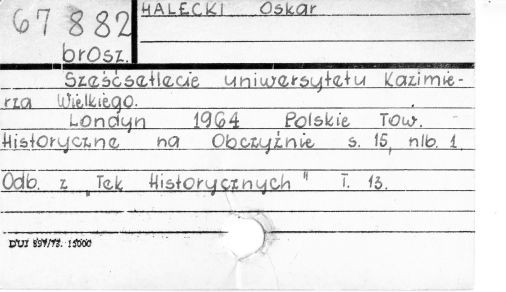 67 882
brosz.
HALECKI Oskar
Sześćsetlecie uniwersytetu Kazimie-
rza Wielkiego.
Londyn 1964 Polskie Tow.
Historyczne na Obczyźnie s. 15, nlb. 1.
Odb. z "Tek Historycznych" T. 13.
DUJ 897/73. 15000